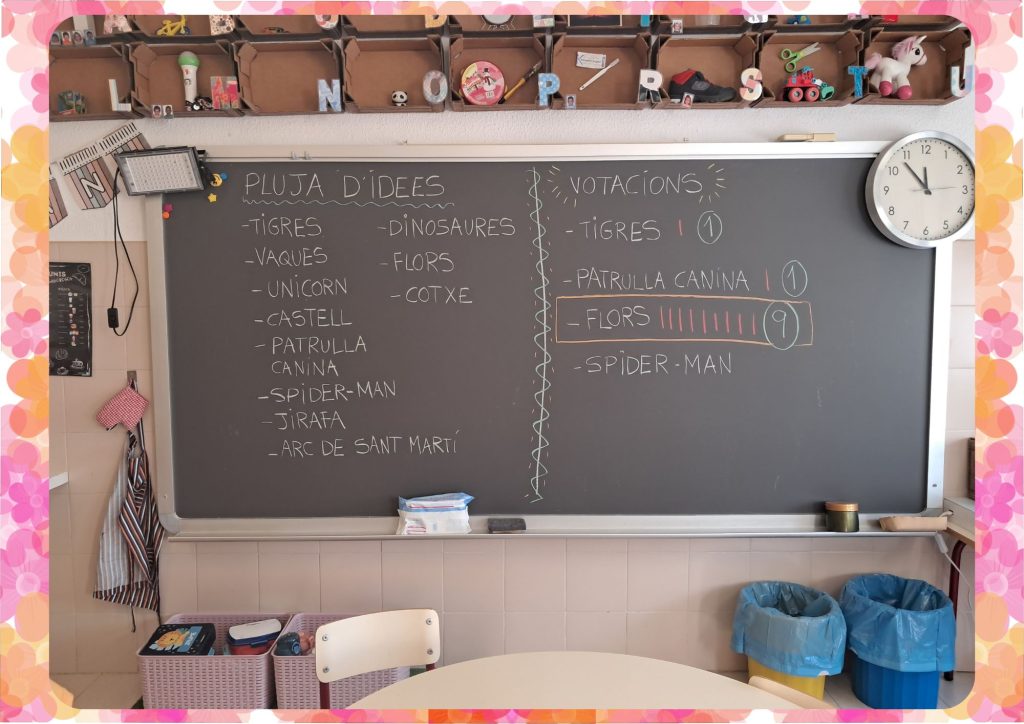 L M N O P R S T U
N
PLUJA D'IDEES
-TIGRES
-VAQUES
-UNICORN
-CASTELL
-PATRULLA
CANINA
-SPIDER-MAN
-JIRAFA
-ARC DE SANT MARTÍ
-DINOSAURES
-FLORS
-COTXE
VOTACIONS
-TIGRES | 1
-PATRULLA CANINA | 1
-FLORS ||||||||| 9
-SPIDER-MAN
12
1
2
3
4
5
6
7
8
9
10
11